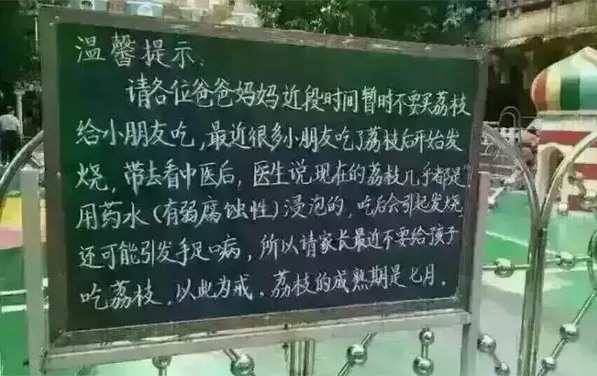 温馨提示.
请各位爸爸妈妈近段时间暂时不要买荔枝
给小朋友吃，最近很多小朋友吃了荔枝后开始发
烧，带去看中医后，医生说现在的荔枝几乎都是
用药水(有弱腐蚀性)浸泡的，吃后会引起发烧
还可能引发手足口病，所以请家长最近不要给孩子
吃荔枝，以此为戒。荔枝的成熟期是七月。